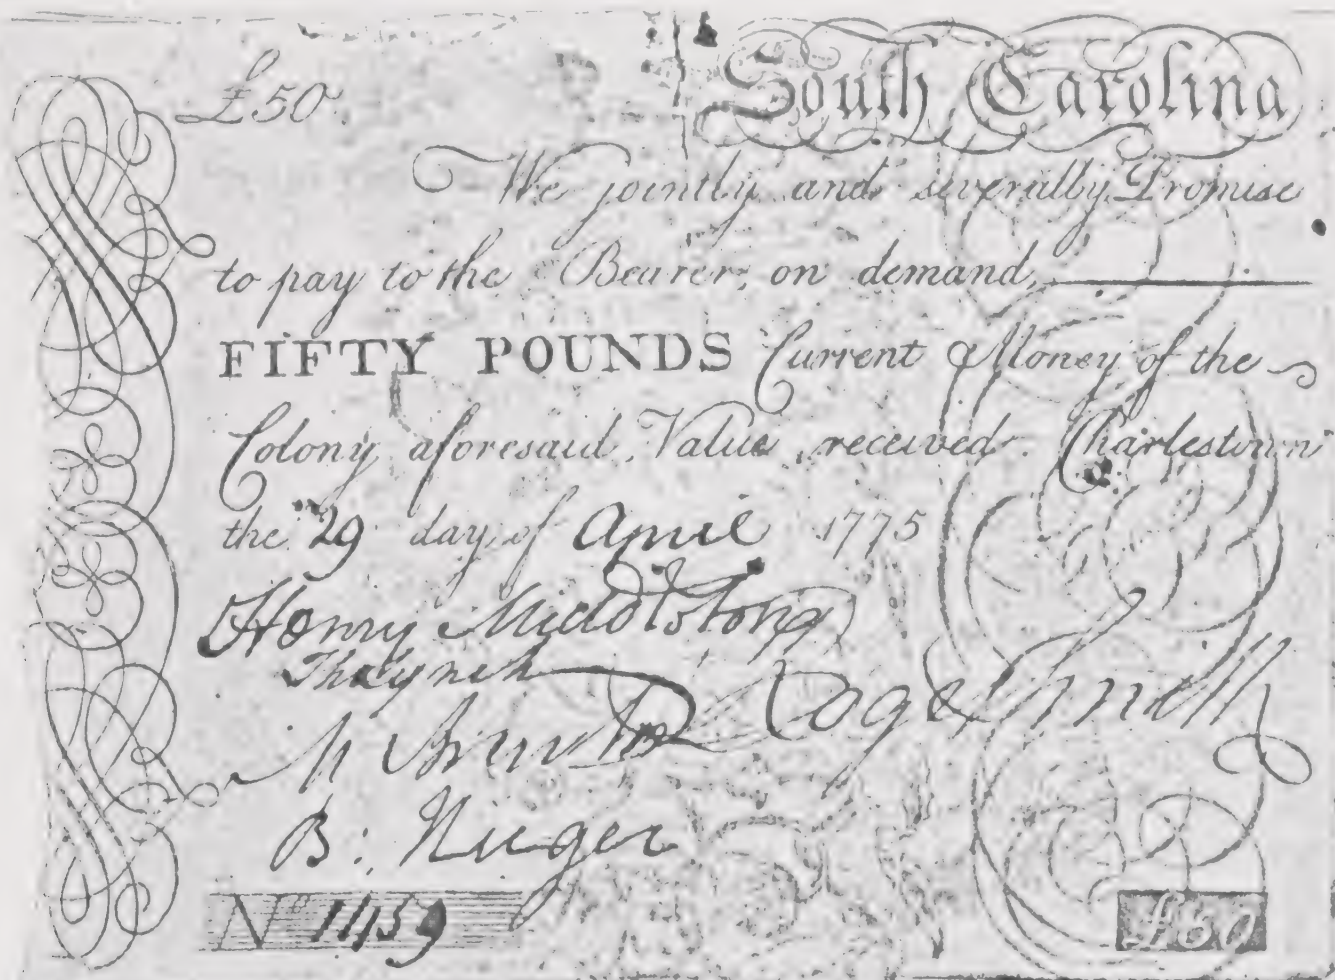 £50.
South Carolina
We jointly and severally Promise
to pay to the Bearer, on demand,
FIFTY POUNDS Current Money of the
Colony aforesaid, Value received. Charlestown
the 29 day of April 1775
Henry Middleton
Tho Lynch
Roger Smith
M Brewton
B: Huger
No 1459
£50